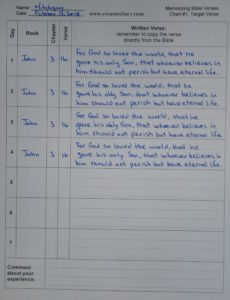 Name: Mitchary www.creatorfuns.com Memorizing Bible Verses
Date: October 12, 2018 Chart #1: Target Verse
Day Book Chapter Verse Written Verse:
remember to copy the verse
directly from the Bible
1 John 3 16 For God so loved the world, that he
gave his only Son, that whoever believes in
him should not perish but have eternal life.
2 John 3 16 For God so loved the world, that he
gave his only Son, that whoever believes in
him should not perish but have eternal life.
3 John 3 16 For God so loved the world, that he
gave his only Son, that whoever believes in
him should not perish but have eternal life.
4 John 3 16 For God so loved the world, that he
gave his only Son, that whoever believes in
him should not perish but have eternal life.
5
6
7
Comment
about your
experience: